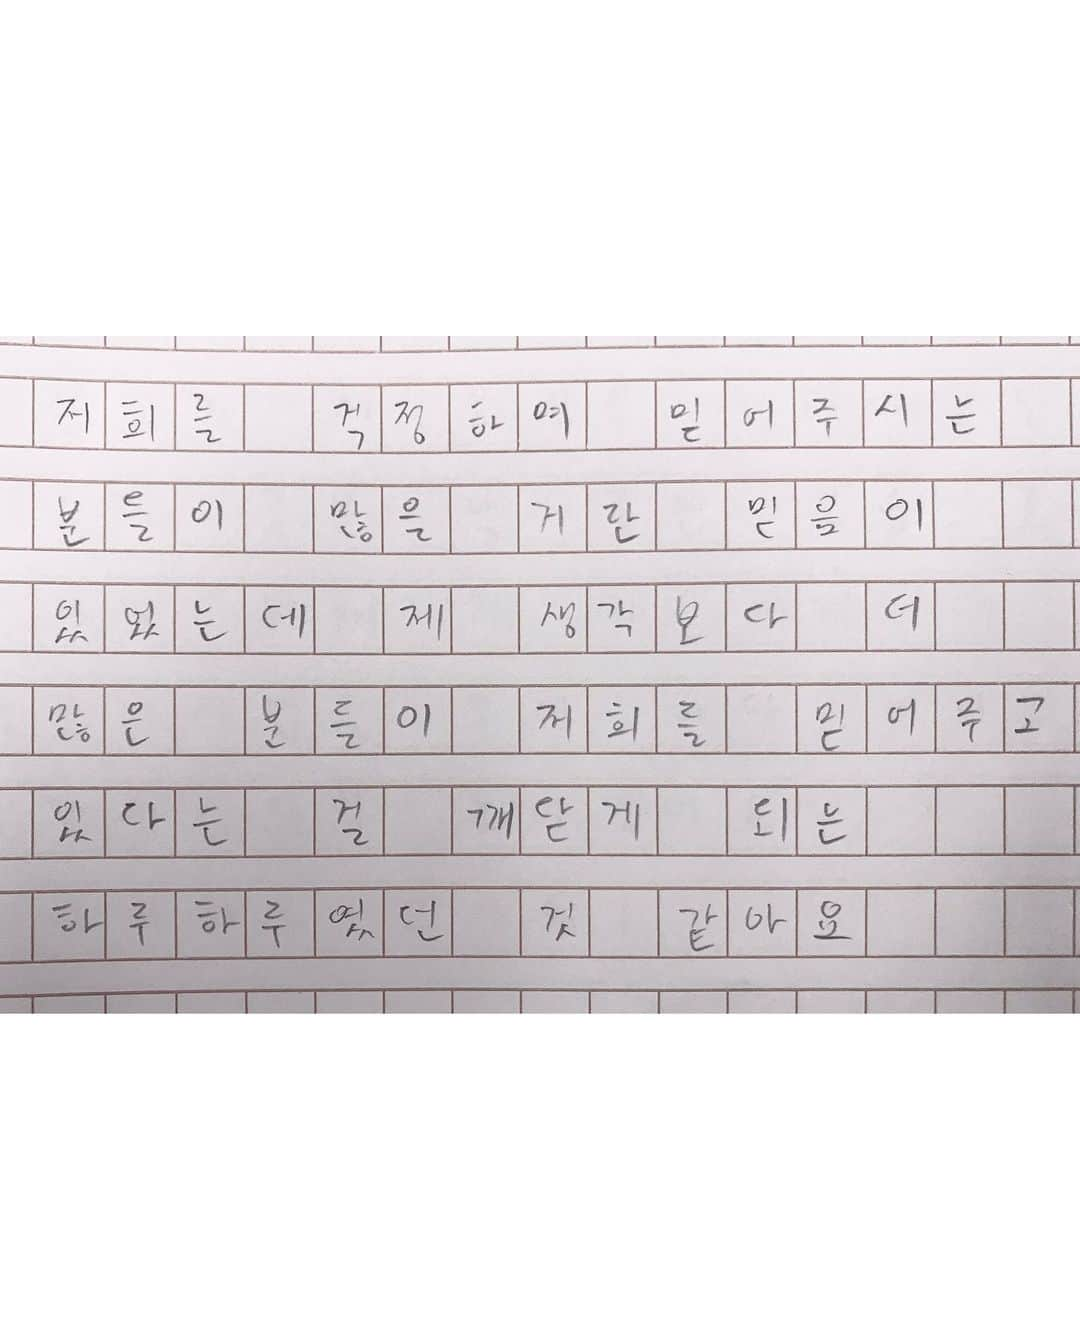 저희를 걱정하여 믿어주시는
분들이 많을 거란 믿음이
있었는데 제 생각보다 더
많은 분들이 저희를 믿어주고
있다는 걸 깨닫게 되는
하루하루였던 것 같아요